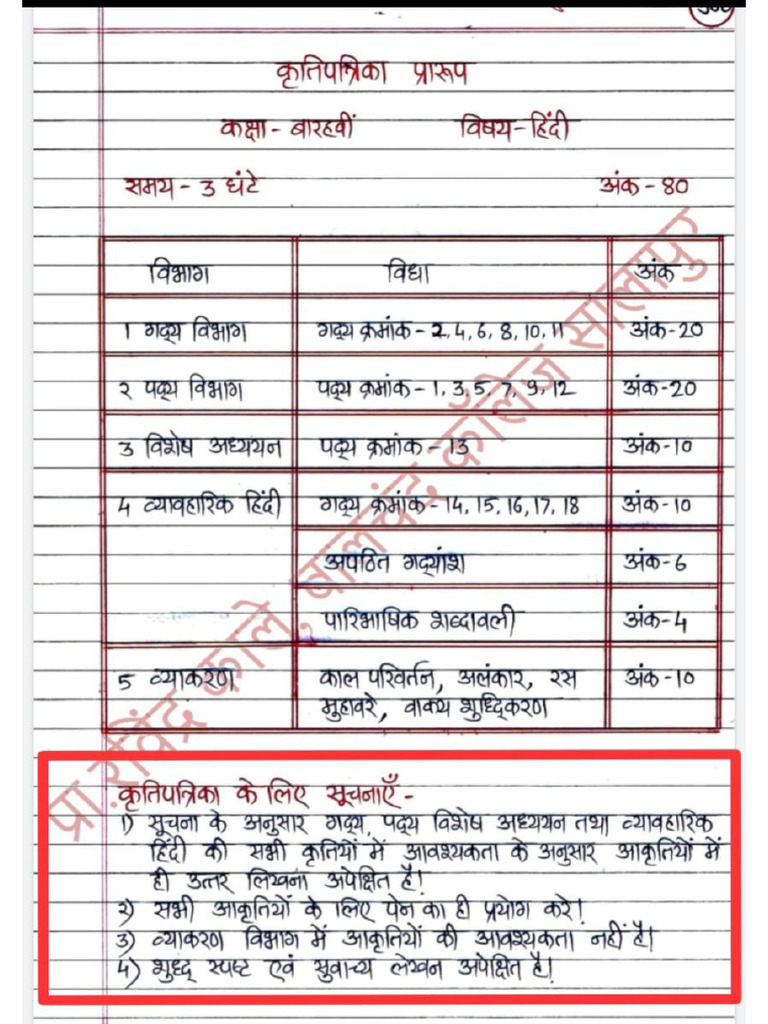 कृतिपत्रिका प्रारूप
कक्षा - बारहवीं विषय - हिंदी
समय - 3 घंटे अंक - 80
विभाग विधा अंक
1 गद्य विभाग गद्य क्रमांक - 2, 4, 6, 8, 10, 11 अंक-20
२ पद्य विभाग पद्य क्रमांक - 1, 3, 5, 7, 9, 12 अंक-20
3 विशेष अध्ययन पद्य क्रमांक - 13 अंक-10
4 व्यावहारिक हिंदी गद्य क्रमांक - 14, 15, 16, 17, 18 अंक-10
अपठित गद्यांश अंक-6
पारिभाषिक शब्दावली अंक-4
5 व्याकरण काल परिवर्तन, अलंकार, रस अंक-10
मुहावरे, वाक्य शुद्धिकरण
प्रा. रविंद्र काले, बालचंद कॉलेज सोलापुर
कृतिपत्रिका के लिए सूचनाएँ -
1) सूचना के अनुसार गद्य, पद्य विशेष अध्ययन तथा व्यावहारिक
हिंदी की सभी कृतियों में आवश्यकता के अनुसार आकृतियों में
ही उत्तर लिखना अपेक्षित है।
२) सभी आकृतियों के लिए पेन का ही प्रयोग करे।
3) व्याकरण विभाग में आकृतियों की आवश्यकता नहीं है।
4) शुद्ध स्पष्ट एवं सुवाच्य लेखन अपेक्षित है।